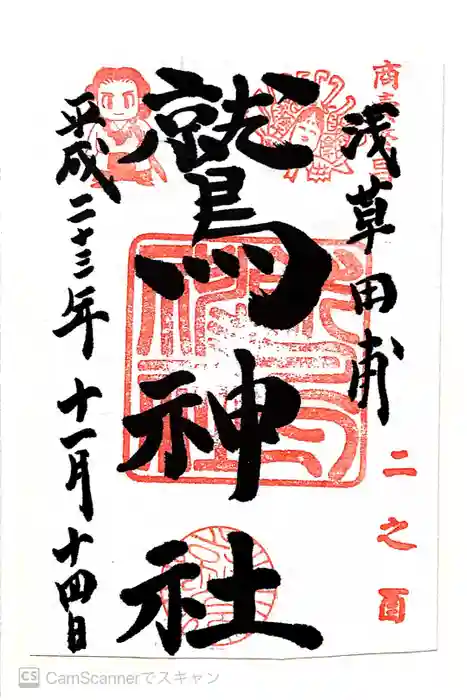 浅草田甫
二之酉
鷲神社
平成二十三年十一月十四日
CS CamScannerでスキャン